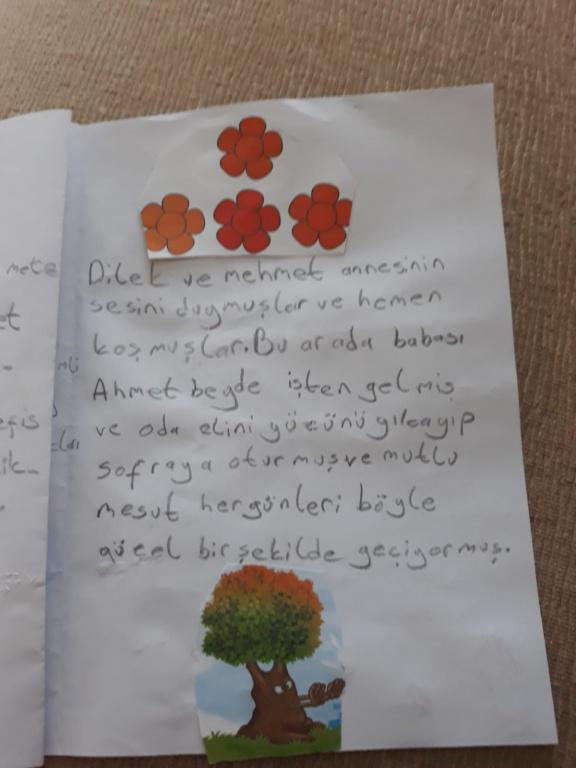 mete
et
efis
ik-
mli
Dilek ve mehmet annesinin
sesini duymuşlar ve hemen
koşmuşlar. Bu arada babası
Ahmet beyde işten gelmiş
ve oda elini yüzünü yıkayıp
sofraya oturmuş ve mutlu
mesut hergünleri böyle
güzel bir şekilde geçiyormuş.